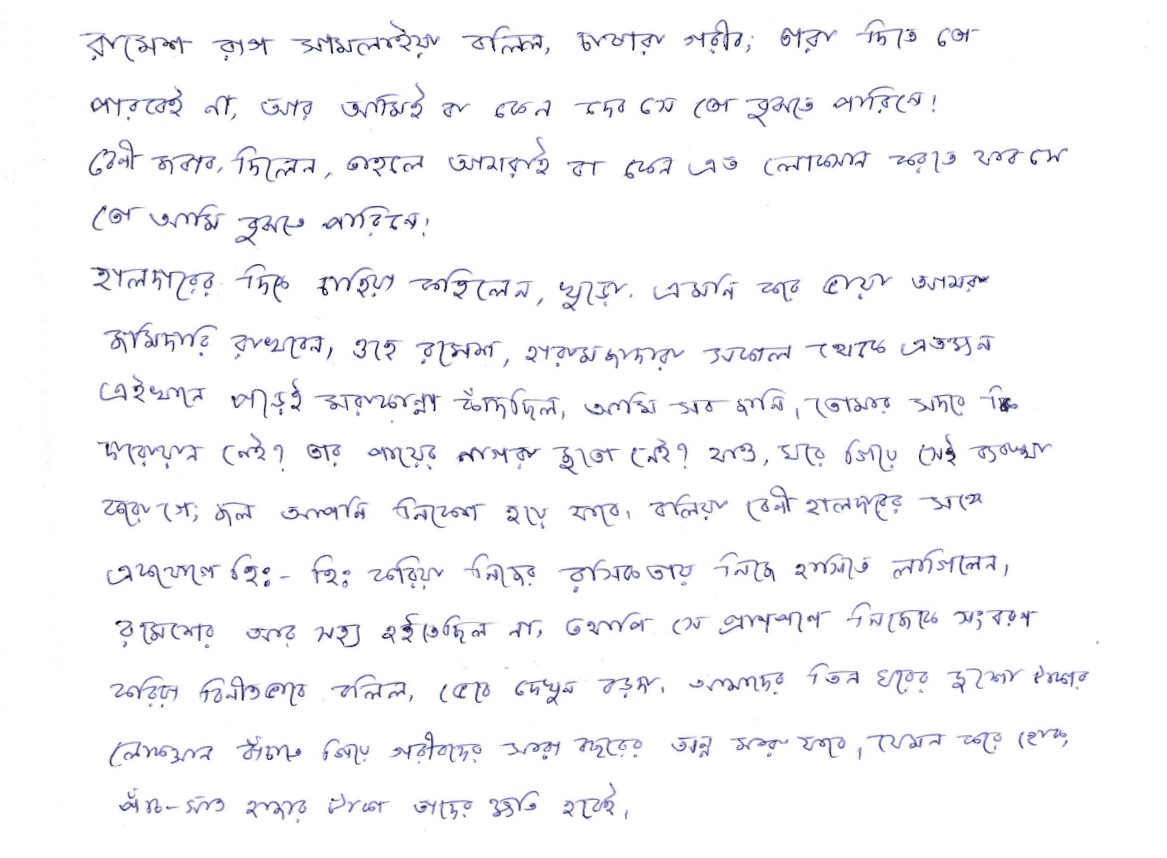 রমেশ রাগ সামলাইয়া বলিল, চাষারা গরীব; তারা দিতে তো
পারবেই না, আর আমিই বা কেন দেব সে তো বুঝতে পারিনে!
বেণী জবাব দিলেন, তাহলে আমরাই বা কেন এত লোকসান করতে যাব সে
তো আমি বুঝতে পারিনে!
হালদারের দিকে চাহিয়া কহিলেন, খুড়ো, এমনি করে ভায়া আমার
জমিদারি রাখবেন, ওহে রমেশ, হারামজাদারা সকাল থেকে এতক্ষন
এইখানে পড়েই মরাকান্না কাঁদছিল, আমি সব জানি, তোমার সদরে কি
দারোয়ান নেই? তার পায়ের নাগরা জুতো নেই? যাও, ঘরে গিয়ে সেই ব্যবস্থা
করো গে; জল আপনি নিকেশ হয়ে যাবে, বলিয়া বেণী হালদারের সঙ্গে
একযোগে হিঃ-হিঃ করিয়া নিজের রসিকতায় নিজে হাসিতে লাগিলেন,
রমেশের আর সহ্য হইতেছিল না, তথাপি সে প্রাণপণে নিজেকে সংবরণ
করিয়া বিনীতভাবে বলিল, ভেবে দেখুন বড়দা, আমাদের তিন ঘরের দুশো টাকার
লোকসান বাঁচাতে গিয়ে গরীবদের সারা বছরের অন্ন মারা যাবে, যেমন করে হোক,
পাঁচ-সাত হাজার টাকা তাদের ক্ষতি হবেই,